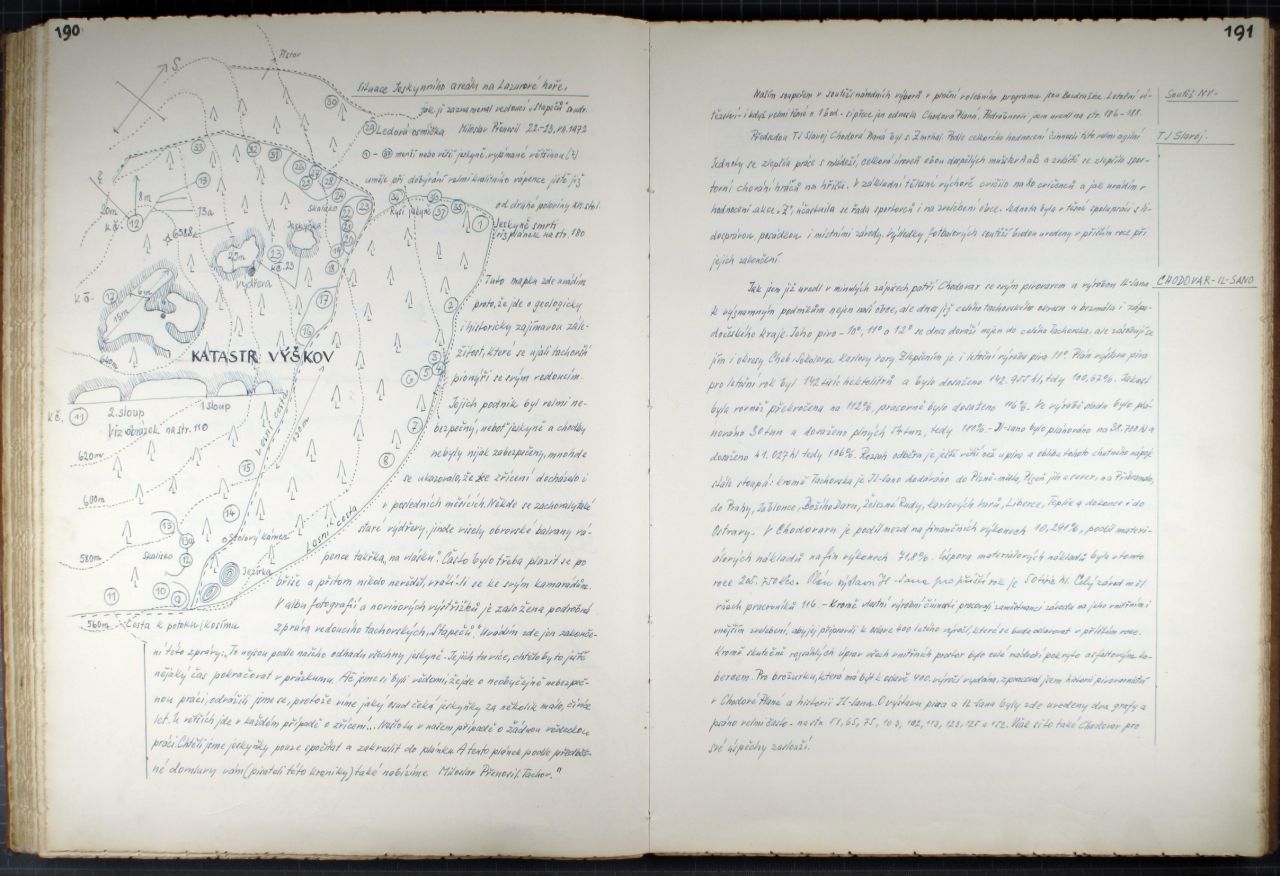 190
S
Astor
Situace Jeskynního areálu na Lazurové hoře,
jak ji zaznamenal vedoucí "Stapečů" soudr.
Ledová osmička Miloslav Přenosil 22.-23.VII.1972
menší nebo větší jeskyně, vylámané většinou (?)
uměle při dobývání velmi kvalitního vápence jistě již
od druhé poloviny XIX. stol.
Skalisko
Rysí jeskyně
Jeskyně smrti
viz plánek na str. 180
20m
8m
13a
k č. 12
Jeskyňka
22m
k č. 23
Vydřeva
k č.
6m
15m
640m
KATASTR VÝŠKOV
Tuto mapku zde uvádím
proto, že jde o geologicky
i historicky zajímavou zále-
žitost, které se ujali tachovští
pionýři se svým vedoucím.
Jejich podnik byl velmi ne-
bezpečný, neboť jeskyně a chodby
nebyly nijak zabezpečeny, mnohde
se ukazovalo, že ke zřícení docházelo i
v posledních měsících. Někde se zachovaly také
staré vydřevy, jinde visely obrovské balvany vá-
pence takřka "na vlásku". Často bylo třeba plazit se po
břiše a přitom nikdo nevěděl, vrátí-li se ke svým kamarádům.
k č. 11
2. sloup
1 sloup
Viz obrázek na str. 110
620m
600m
580m
560m
Skalisko
Stolový kámen
Jezírka
Lesní cesta
Cesta k potoku (Kosímu
V albu fotografií a novinových výstřižků je založena podrobná
zpráva vedoucího tachovských "Stapečů." Uvádím zde jen zakonče-
ní této zprávy: "To nejsou podle našeho odhadu všechny jeskyně. Je jich tu více, chtělo by to ještě
nějaký čas pokračovat v průzkumu. Ač jsme si byli vědomi, že jde o neobyčejně nebezpeč-
nou práci, odvážili jsme se, protože víme jaký osud čeká jeskyňky za několik málo, či více
let. U větších jde v každém případě o zřícení... Nešlo tu v našem případě o žádnou vědeckou
práci. Chtěli jsme jeskyňky pouze spočítat a zakreslit do plánku. A tento plánek podle předběž-
né domluvy vám (pisateli této kroniky) také nabízíme Miloslav Přenosil, Tachov."
191
Soutěž NV-
Naším soupeřem v soutěži národních výborů v plnění volebního programu jsou Bezdružice. Letošní ví-
tězství - i když velmi těsné o 1 bod - si přece jen odnesla Chodová Planá. Podrobnosti jsem uvedl na str. 186-188.
TJ Slavoj.
Předsedou TJ Slavoj Chodová Planá byl s. Zmrhal. Podle celkového hodnocení činnosti této velmi agilní
Jednoty se zlepšila práce s mládeží, celková úroveň obou dospělých mužstev A a B a zvláště se zlepšilo spor-
tovní chování hráčů na hřišti. V základní tělesné výchově cvičilo na 60 cvičenců a jak uvádím v
hodnocení akce "Z", účastnila se řada sportovců i na zvelebení obce. Jednota byla v těsné spolupráci s li-
dosprávou, posádkou i místními závody. Výsledky fotbalových soutěží budou uvedeny v příštím roce při
jejich zakončení.
CHODOVAR-IL-SANO
Jak jsem již uvedl v minulých zápisech patří Chodovar se svým pivovarem a výrobou IL-Sana
k významným podnikům nejen naší obce, ale dnes již celého tachovského okresu a brzměla i zápa-
dočeského kraje. Jeho pivo - 10°, 11° a 12° se dnes dováží nejen do celého Tachovska, ale zásobují se
jím i okresy Cheb, Sokolov a Karlovy Vary. Zlepšením je i letošní výroba piva 11°. Plán výstavu piva
pro letošní rok byl 142 tisíc hektolitrů a bylo dosaženo 142.955 hl, tedy 100,67%. Jakost
byla rovněž překročena na 112%, pracovně bylo dosaženo 116%. Ve výrobě sladu bylo plá-
nováno 30 tun a dosaženo plných 54 tun, tedy 181%. - Il-sano bylo plánováno na 38.700 hl a
dosaženo 41.027 hl tedy 106%. Rozsah odběru je ještě větší než u piva a obliba tohoto chutného nápoje
stále stoupá: kromě Tachovska je Il-Sano dodáváno do Plzně-města, Plzeň-jih a sever, na Příbramsko,
do Prahy, Jablonce, Božího Daru, Železné Rudy, Karlových Varů, Liberce, Teplic a dokonce i do
Ostravy. V Chodovaru je podíl mezd na finančních výkonech 10,291%, podíl materi-
álových nákladů na fin. výkonech 71,8%. Úspora materiálových nákladů byla v tomto
roce 205.750 Kčs. Plán výstavu Il-Sana pro příští rok je 50 tisíc hl. Celý závod měl
všech pracovníků 116. - Kromě vlastní výrobní činnosti pracovali zaměstnanci závodu na jeho vnitřním i
vnějším zvelebení, aby jej připravili k oslavě 400 letého výročí, které se bude oslavovat v příštím roce.
Kromě skutečně rozsáhlých úprav všech vnitřních prostor bylo celé nádvoří pokryto asfaltovým ko-
bercem. Pro brožurku, která má být k oslavě 400. výročí vydána, zpracoval jsem historii pivovarnictví
v Chodové Plané a historii Il-Sana. O výstavu piva a Il-Sana byly zde uvedeny dva grafy a
psáno velmi často - na str. 51, 65, 75, 103, 102, 113, 123, 125 a 152. Však si to také Chodovar pro
své úspěchy zaslouží.